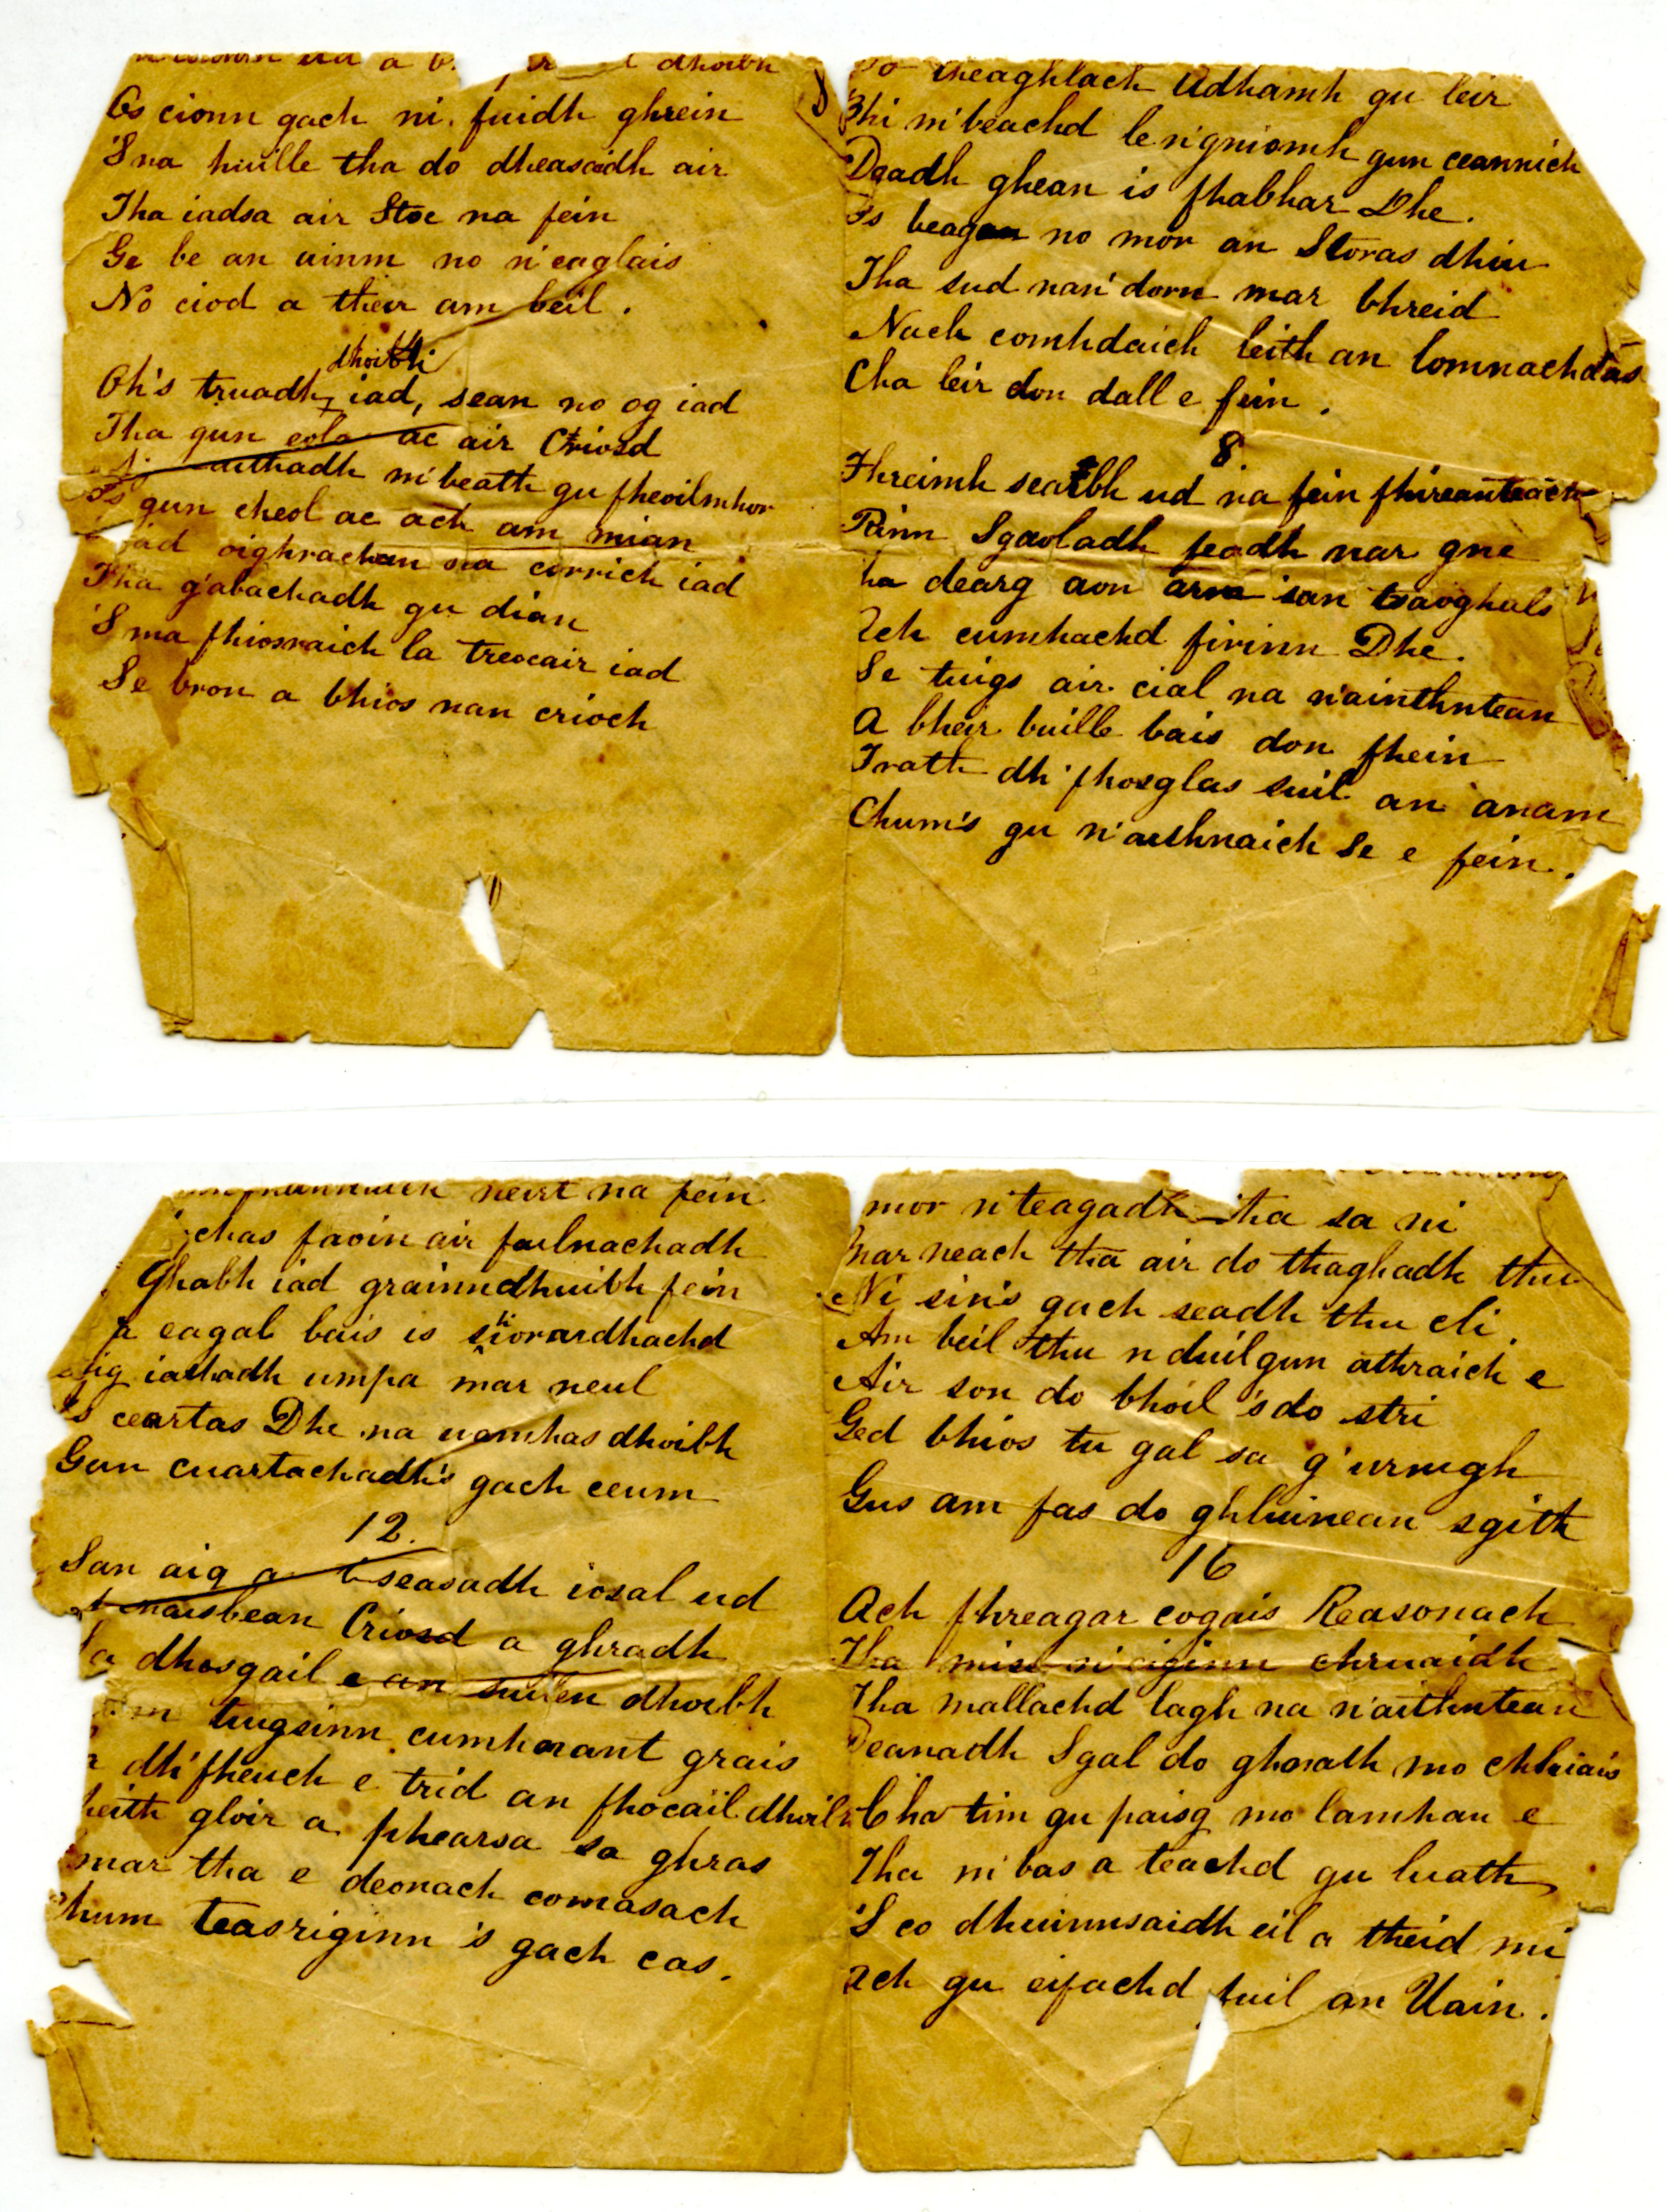 a dhoibh
Os cionn gach ni. fuidh ghrein
'S na huille tha do dheasaidh air
Tha iadsa air Stoc na fein
Ge be an ainm no n'eaglais
No ciod a their am beil.
dhoibh
Oh's truadh iad, sean no og iad
Tha gun eola ac air Criosd
m'beath gu fheoilmhor
Is gun cheol ac ach am mian
iad oighrachan na corrich iad
Tha g'abachadh gu dian
'S ma fhiosraich la treocair iad
Se bron a bhios nan crioch
theaghlach Adhamh gu leir
Bhi m'beachd le n'gniomh gun ceannich
Deadh ghean is fhabhar Dhe.
Is beagan no mor an Storas dhiu
Tha sud nan' dorn mar bhreid
Nach comhdaich leith an lomnachdas
Cha leir don dall e fein.
8
Fhreimh searbh ud na fein fhireanteachd
Rinn Sgaoladh feadh nar gne
ha dearg aon arm 'san tsaoghals
Ach cumhachd firinn Dhe.
Se tuigs air cial na n'ainthntean
A bheir buille bais don fhein
Trath dh'fhosglas suil an anam
Chum's gu n'aithnaich Se e fein.
neirt na fein
chas faoin air failnachadh
Ghabh iad grainndhuibh fein
a eagal bais is siorardhachd
iathadh umpa mar neul
Is ceartas Dhe na uamhas dhoibh
Gan cuartachadh's gach ceum
12.
San aig a t-seasadh iosal ud
naisbean Criosd a ghradh
a dhosgail e an suilen dhoibh
tuigsinn cumhnant grais
dh'fheuch e trid an fhocail dhoibh
leith gloir a phearsa sa ghras
mar tha e deonach comasach
Chum teasriginn 's gach cas.
mor n'teagadh tha sa ni
mar neach tha air do thaghadh thu
Ni sin's gach seadh thu cli.
Am beil thu n duil gun athraich e
Air son do bhoil 's do stri
Ged bhios tu gal sa g'urnigh
Gus am fas do ghluinean sgith
16
Ach fhreagar cogais Reasonach
Tha mise n'eiginn chruaidh
Tha mallachd lagh na n'aithntean
Deanadh Sgal do ghnath mo chluais
Cha tim gu paisg mo lamhan e
Tha m'bas a teachd gu luath
'S co dhuinnsaidh eil a theid mi
Ach gu eifachd fuil an Uain.